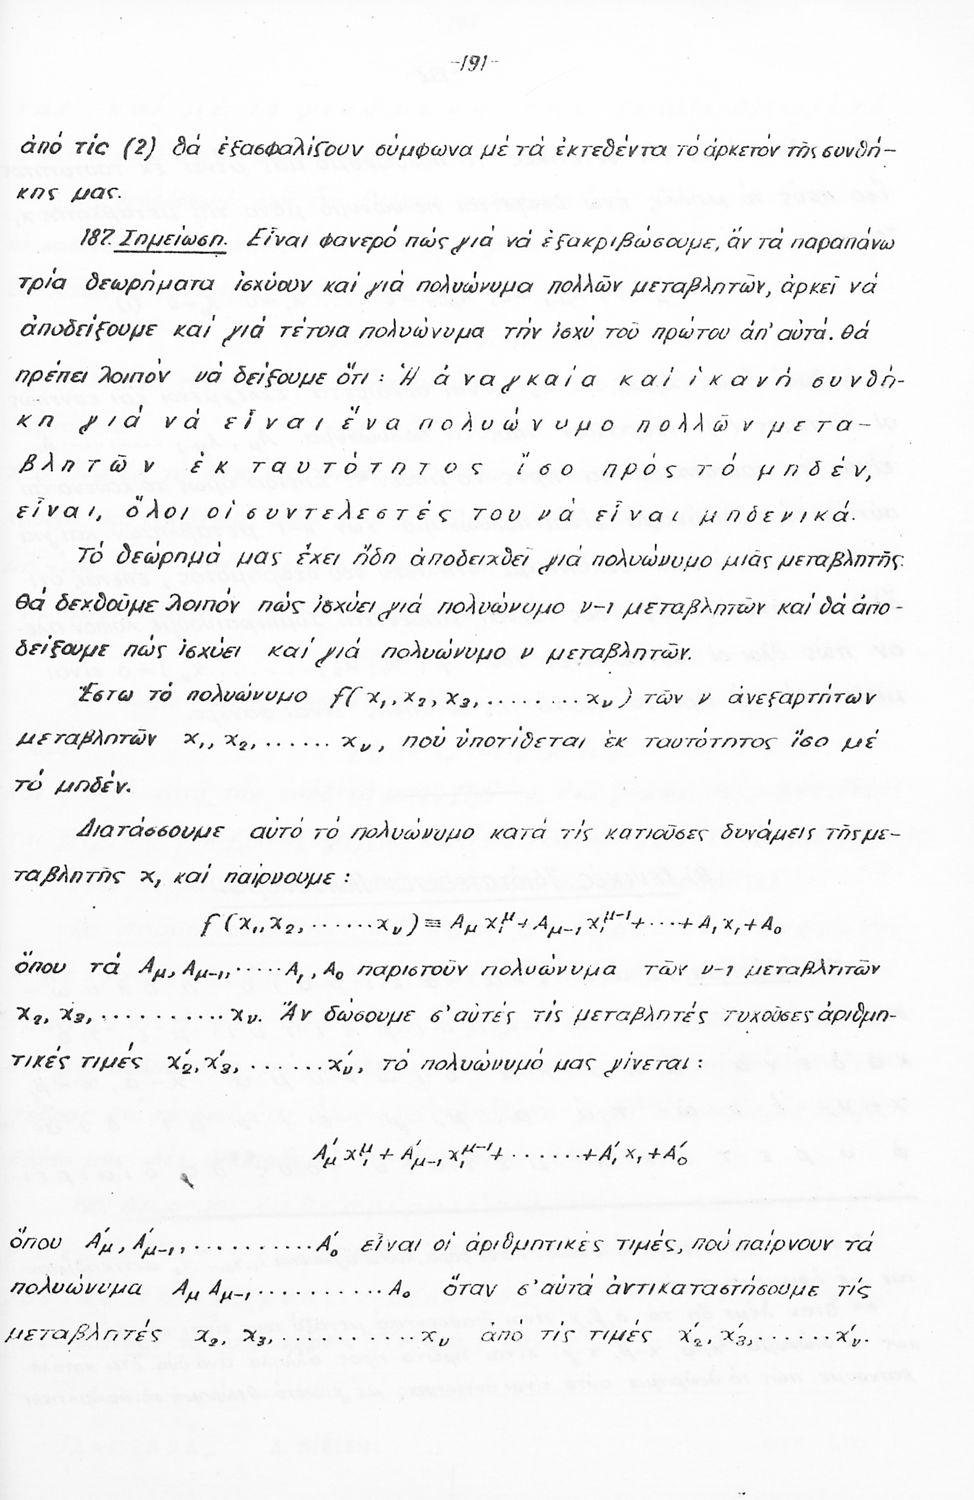 -191-
ἀπό τίς (2) θά ἐξασφαλίζουν σύμφωνα μέ τά ἐκτεθέντα τό ἀρκετόν τῆς συνθή-
κης μας.
187. Σημείωση. Εἶναι φανερό πώς γιά νά ἐξακριβώσουμε, ἄν τά παραπάνω
τρία θεωρήματα ἰσχύουν καί γιά πολυώνυμα πολλῶν μεταβλητῶν, ἀρκεῖ νά
ἀποδείξουμε καί γιά τέτοια πολυώνυμα τήν ἰσχύ τοῦ πρώτου ἀπ' αὐτά. Θά
πρέπει λοιπόν νά δείξουμε ὅτι : Ἡ ἀναγκαία καί ἱκανή συνθή-
κη γιά νά εἶναι ἕνα πολυώνυμο πολλῶν μετα-
βλητῶν ἐκ ταυτότητος ἴσο πρός τό μηδέν,
εἶναι, ὅλοι οἱ συντελεστές του νά εἶναι μηδενικά.
Τό θεώρημά μας ἔχει ἤδη ἀποδειχθεῖ γιά πολυώνυμο μιᾶς μεταβλητῆς.
Θά δεχθοῦμε λοιπόν πώς ἰσχύει γιά πολυώνυμο ν-1 μεταβλητῶν καί θά ἀπο-
δείξουμε πώς ἰσχύει καί γιά πολυώνυμο ν μεταβλητῶν.
Ἔστω τό πολυώνυμο f(x₁, x₂, x₃, ......... xᵥ) τῶν ν ἀνεξαρτήτων
μεταβλητῶν x₁, x₂, ...... xᵥ, πού ὑποτίθεται ἐκ ταυτότητος ἴσο μέ
τό μηδέν.
Διατάσσουμε αὐτό τό πολυώνυμο κατά τίς κατιοῦσες δυνάμεις τῆς με-
ταβλητῆς x₁ καί παίρνουμε :
f(x₁, x₂, ...... xᵥ) ≡ A_μ x₁^μ + A_{μ-1} x₁^{μ-1} + ... + A₁x₁ + A₀
ὅπου τά A_μ, A_{μ-1}, ..... A₁, A₀ παριστοῦν πολυώνυμα τῶν ν-1 μεταβλητῶν
x₂, x₃, ........... xᵥ. Ἄν δώσουμε σ' αὐτές τίς μεταβλητές τυχοῦσες ἀριθμη-
τικές τιμές x₂́, x₃́, ....... xᵥ́, τό πολυώνυμό μας γίνεται :
A'_μ x₁^μ + A'_{μ-1} x₁^{μ-1} + ....... + A'₁ x₁ + A'₀
ὅπου A'_μ, A'_{μ-1}, ........... A'₀ εἶναι οἱ ἀριθμητικές τιμές, πού παίρνουν τά
πολυώνυμα A_μ A_{μ-1} ............ A₀ ὅταν σ' αὐτά ἀντικαταστήσουμε τίς
μεταβλητές x₂, x₃, ............ xᵥ ἀπό τίς τιμές x'₂, x'₃, ...... x'ᵥ.